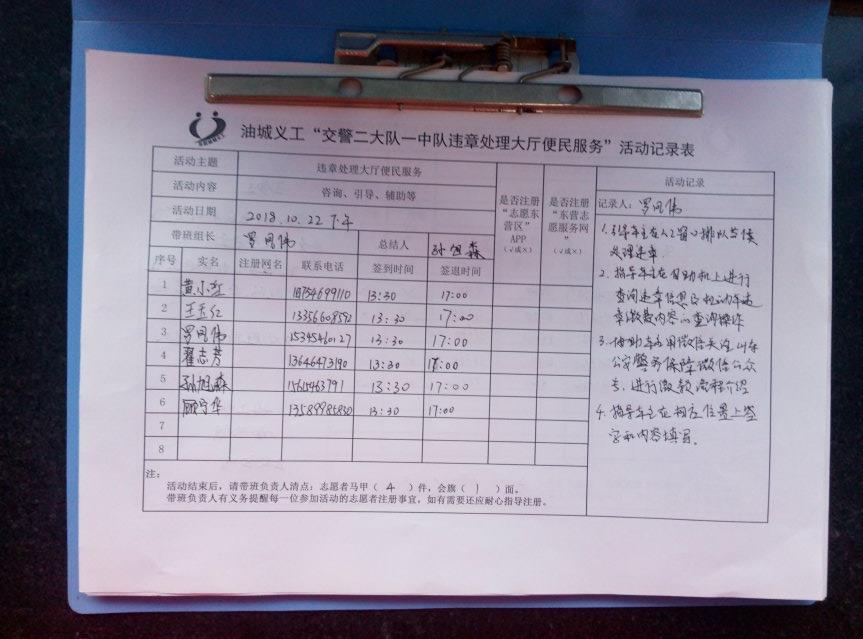 油城义工“交警二大队一中队违章处理大厅便民服务”活动记录表
活动主题 违章处理大厅便民服务
活动内容 咨询、引导、辅助等
活动日期 2018.10.22 下午
带班组长 总结人 孙旭森
是否注册“志愿东营区”APP（√或×）
是否注册“东营志愿服务网”（√或×）
序号 实名 注册网名 联系电话 签到时间 签退时间
1 黄小红 18754699110 13:30 17:00
2 王玉红 13356608592 13:30 17:00
3 15345460127 13:30 17:00
4 翟志芳 13646473190 13:30 17:00
5 孙旭森 13:30 17:00
6 顾宁华 13589985850 13:30 17:00
7
8
活动记录
记录人：
1. 引导车主在人工窗口排队等候
处理违章
2. 指导车主在自助机上进行
查询违章信息及机动车违
章缴费内容的查询操作
3. 协助车主用微信关注山东
公安警务保障微信公众
号，进行缴款流程介绍
4. 指导车主在相应位置上签
字和内容填写。
注：
活动结束后，请带班负责人清点：志愿者马甲（ 4 ）件，会旗（ 1 ）面。
带班负责人有义务提醒每一位参加活动的志愿者注册事宜，如有需要还应耐心指导注册。